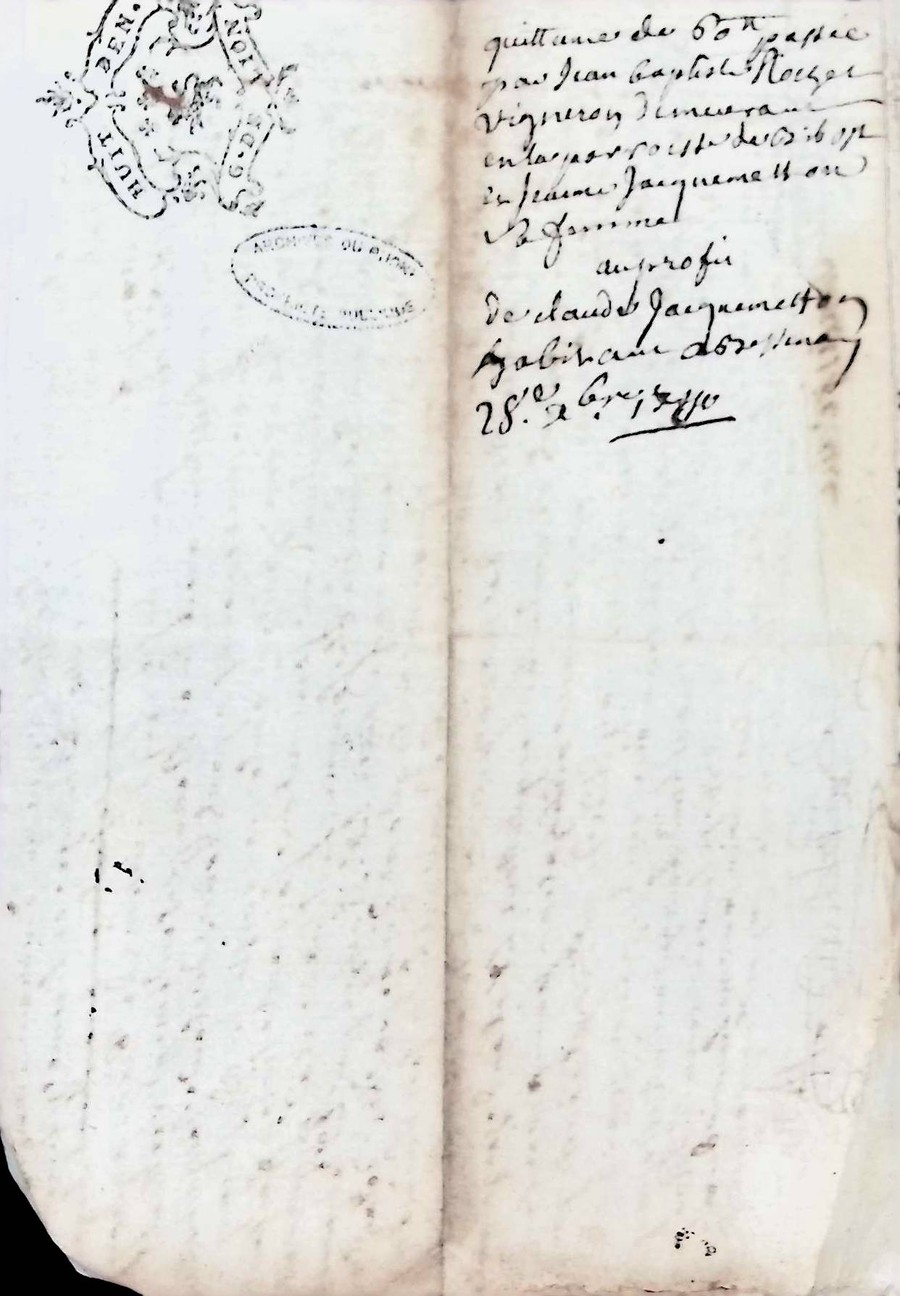 HUIT DEN.
G. DE
ARCHIVES DU RHONE
quittance de 60tt passée
par Jean baptiste Rochet
vigneron demeurant
en la parroisse de
et Jeanne Jacquemetton
Sa femme
au profit
de claude Jacquemetton
habitant a
28e. xbre.